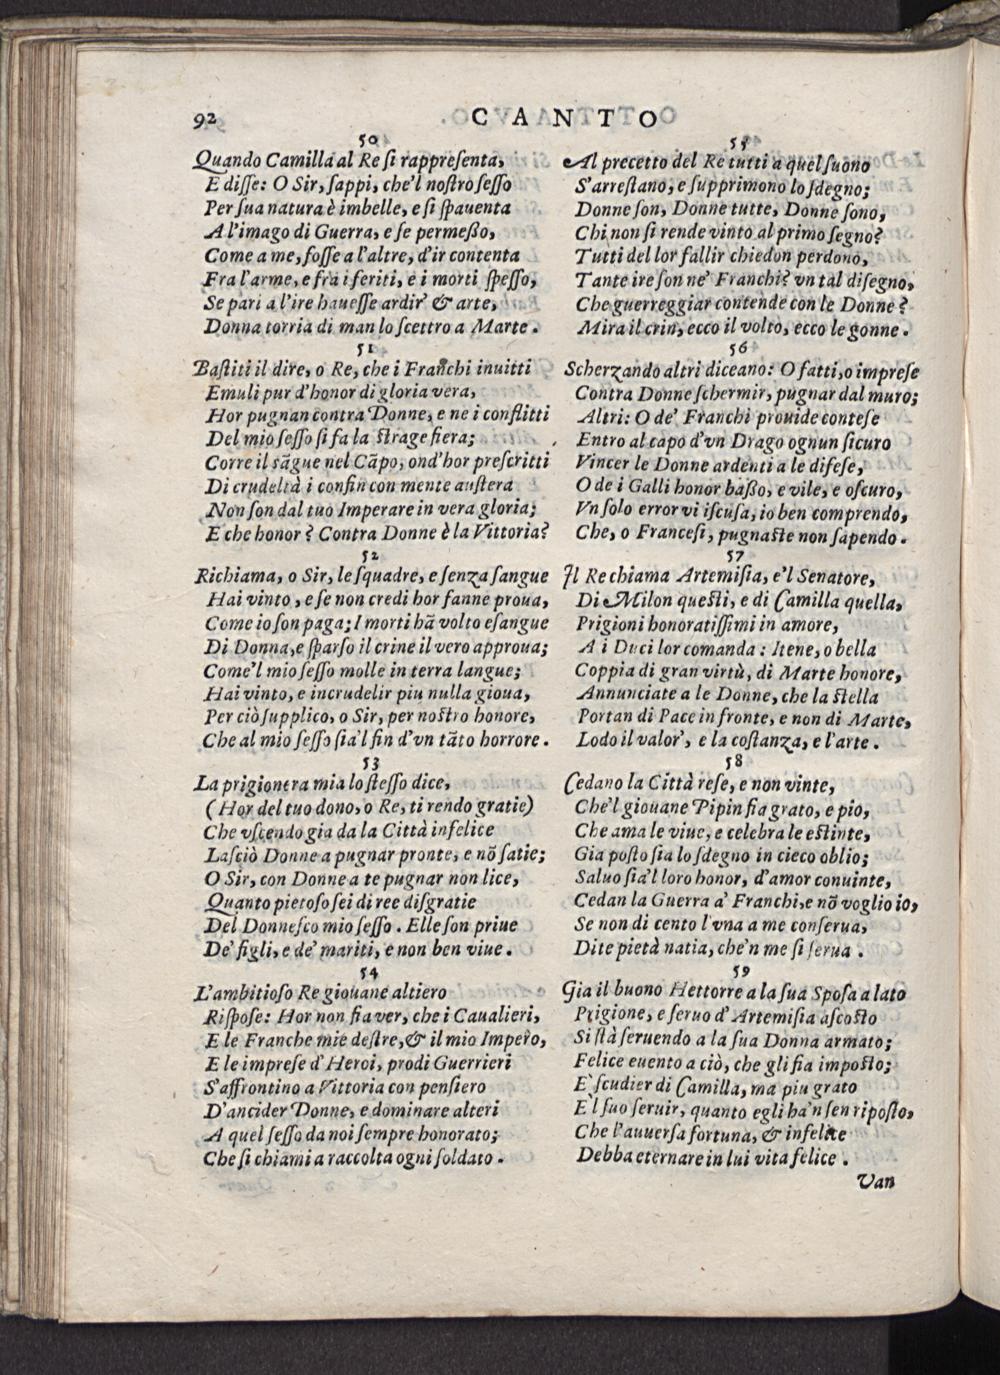 92
CANTO
50
Quando Camilla al Re ſi rappreſenta,
E diſſe: O Sir, ſappi, che'l noſtro ſeſſo
Per ſua natura è imbelle, e ſi ſpauenta
A l'imago di Guerra, e ſe permeßo,
Come a me, foſſe a l'altre, d'ir contenta
Fra l'arme, e fra i feriti, e i morti ſpeſſo,
Se pari a l'ire haueſſe ardir' & arte,
Donna torria di man lo ſcettro a Marte.
51
Baſtiti il dire, o Re, che i Franchi inuitti
Emuli pur d'honor di gloria vera,
Hor pugnan contra Donne, e ne i conflitti
Del mio ſeſſo ſi fa la ſtrage fiera;
Corre il sãgue nel Cãpo, ond'hor preſcritti
Di crudeltà i confin con mente auſtera
Non ſon dal tuo Imperare in vera gloria;
E che honor? Contra Donne è la Vittoria?
52
Richiama, o Sir, le ſquadre, e ſenza ſangue
Hai vinto, e ſe non credi hor fanne proua,
Come io ſon paga; I morti hã volto eſangue
Di Donna, e ſparſo il crine il vero approua;
Come'l mio ſeſſo molle in terra langue;
Hai vinto, e incrudelir piu nulla gioua,
Per ciò ſupplico, o Sir, per noſtro honore,
Che al mio ſeſſo ſia'l fin d'vn tãto horrore.
53
La prigionera mia lo ſteſſo dice,
(Hor del tuo dono, o Re, ti rendo gratie)
Che vſcendo gia da la Città infelice
Laſciò Donne a pugnar pronte, e nõ ſatie;
O Sir, con Donne a te pugnar non lice,
Quanto pietoſo ſei di ree diſgratie
Del Donneſco mio ſeſſo. Elle ſon priue
De' figli, e de' mariti, e non ben viue.
54
L'ambitioſo Re giouane altiero
Riſpoſe: Hor non fia ver, che i Caualieri,
E le Franche mie deſtre, & il mio Impero,
E le impreſe d'Heroi, prodi Guerrieri
S'affrontino a Vittoria con penſiero
D'ancider Donne, e dominare alteri
A quel ſeſſo da noi ſempre honorato;
Che ſi chiami a raccolta ogni ſoldato.
55
Al precetto del Re tutti a quel ſuono
S'arreſtano, e ſupprimono lo ſdegno;
Donne ſon, Donne tutte, Donne ſono,
Chi non ſi rende vinto al primo ſegno?
Tutti del lor fallir chiedon perdono,
Tante ire ſon ne' Franchi? vn tal diſegno,
Che guerreggiar contende con le Donne?
Mira il crin, ecco il volto, ecco le gonne.
56
Scherzando altri diceano: O fatti, o impreſe
Contra Donne ſchermir, pugnar dal muro;
Altri: O de' Franchi prouide conteſe
Entro al capo d'vn Drago ognun ſicuro
Vincer le Donne ardenti a le difeſe,
O de i Galli honor baßo, e vile, e oſcuro,
Vn ſolo error vi iſcuſa, io ben comprendo,
Che, o Franceſi, pugnaſte non ſapendo.
57
Il Re chiama Artemiſia, e'l Senatore,
Di Milon queſti, e di Camilla quella,
Prigioni honoratiſſimi in amore,
A i Duci lor comanda: Itene, o bella
Coppia di gran virtù, di Marte honore,
Annunciate a le Donne, che la ſtella
Portan di Pace in fronte, e non di Marte,
Lodo il valor', e la coſtanza, e l'arte.
58
Cedano la Città reſe, e non vinte,
Che'l giouane Pipin fia grato, e pio,
Che ama le viue, e celebra le eſtinte,
Gia poſto ſia lo ſdegno in cieco oblio;
Saluo ſia'l loro honor, d'amor conuinte,
Cedan la Guerra a' Franchi, e nõ voglio io,
Se non di cento l'vna a me conſerua,
Dite pietà natia, che'n me ſi ſerua.
59
Gia il buono Hettorre a la ſua Spoſa a lato
Prigione, e ſeruo d'Artemiſia aſcoſto
Si ſtà ſeruendo a la ſua Donna armato;
Felice euento a ciò, che gli fia impoſto;
E' ſcudier di Camilla, ma piu grato
E'l ſuo ſeruir, quanto egli ha'n ſen ripoſto,
Che l'auuerſa fortuna, & infelice
Debba eternare in lui vita felice.
Van